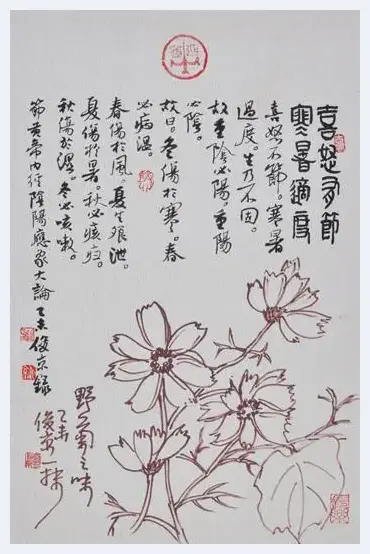 喜怒有節
寒暑適度
喜怒不節。寒暑
過度。生乃不固。
故重陰必陽。重陽
必陰。
故曰。冬傷於寒。春
必病溫。
春傷於風。夏生飧泄。
夏傷於暑。秋必痎疟。
秋傷於濕。冬必咳嗽。
節黄帝内經陰陽應象大論 乙未俊京錄
野菊之味
乙未
俊京一抹